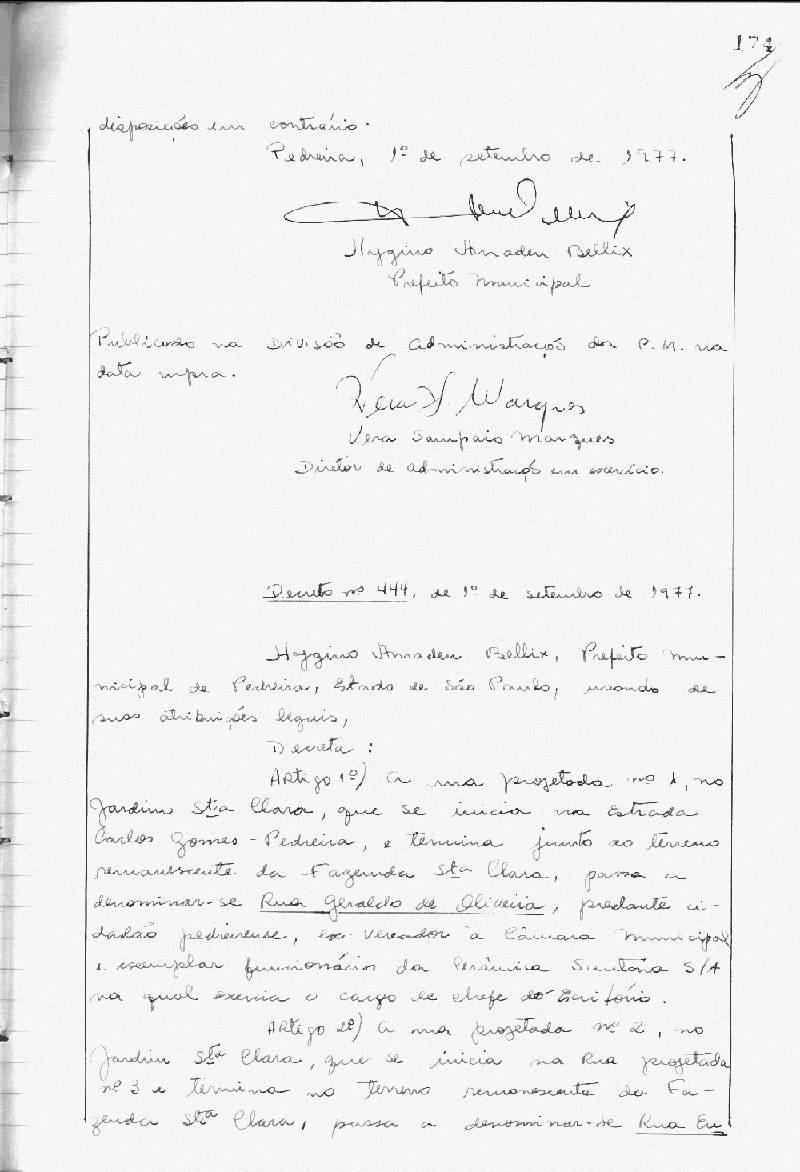 174
disposições em contrário.
Pedreira, 1º de setembro de 1977.
Hygino Amadeu Bellix
Prefeito Municipal
Publicando na Divisão de Administração da P.M. na
data supra.
Vera S. Marques
Vera Sampaio Marques
Diretor de Administração em exercício.
Decreto nº 444, de 1º de setembro de 1977.
Hygino Amadeu Bellix, Prefeito Mu-
nicipal de Pedreira, Estado de São Paulo, usando de
suas atribuições legais,
Decreta:
Artigo 1º) A rua projetada nº 1, no
Jardim Sta Clara, que se inicia na Estrada
Carlos Gomes-Pedreira, e termina junto ao terreno
remanescente da Fazenda Sta Clara, passa a
denominar-se Rua Geraldo de Oliveira, prestante ci-
dadão pedreirense, ex-vereador à Câmara Municipal
e exemplar funcionário da Cerâmica S/A
na qual exercia o cargo de chefe do Escritório.
Artigo 2º) A rua projetada nº 2, no
Jardim Sta Clara, que se inicia na Rua projetada
nº 3 e termina no terreno remanescente da Fa-
zenda Sta Clara, passa a denominar-se Rua Eu